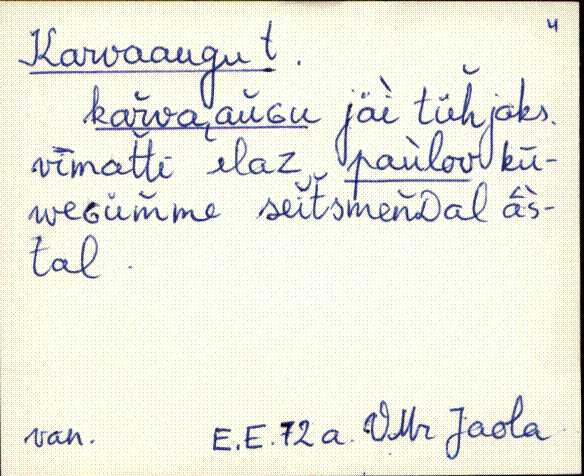 4
Karvaaugu t.
kar̆va aŭɢu jäì tühjaks.
vīmat̆ti elaz paùlov kū-
weɢum̆me seit̆smen̆Dal âs-
tal.
van. E.E. 72 a. VMr Jaola